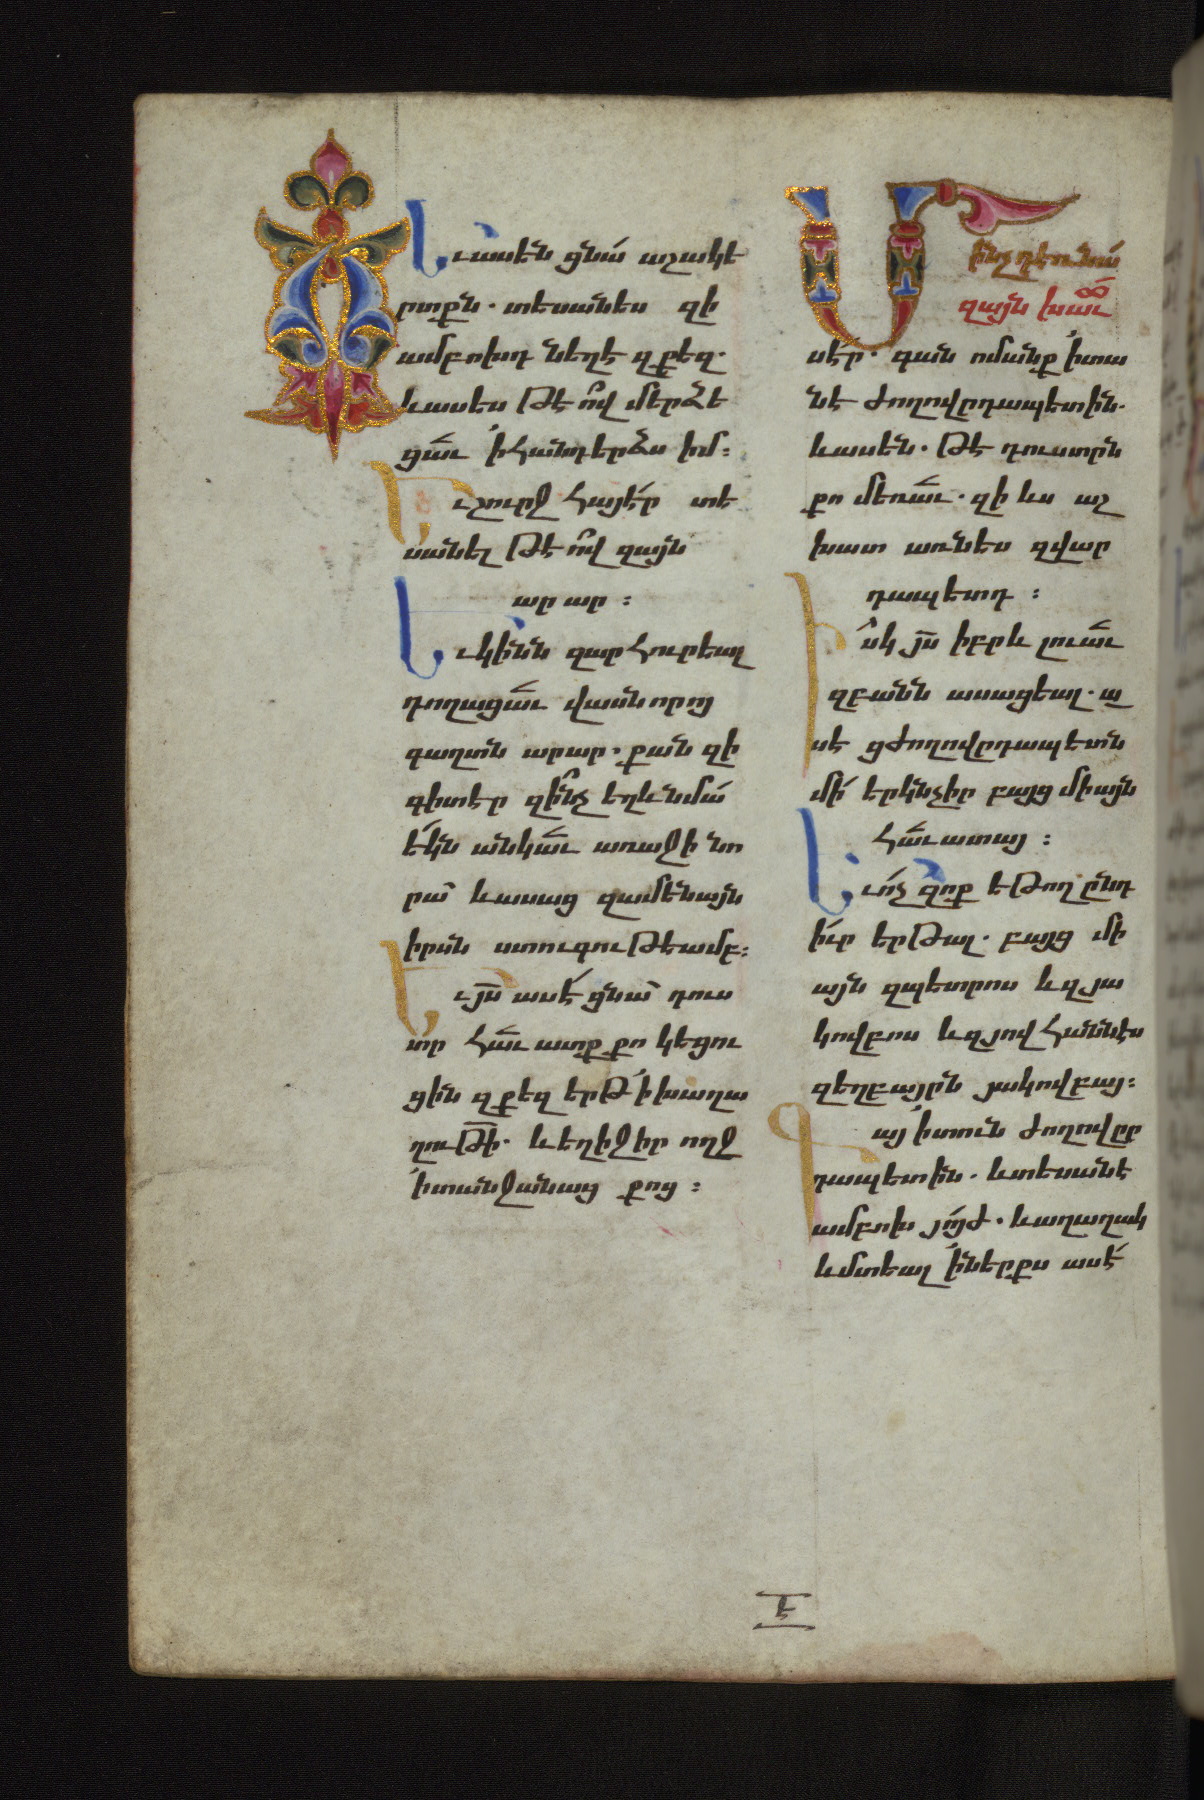 Եւ ասեն ցնա աշակե
րտքն. տեսանես զի
ամբոխդ նեղէ զքեզ.
և ասես թէ ո՞վ մերձե
ցաւ ՚ի հանդերձս իմ։
Եւ շուրջ հայէր տե
սանել թէ ո՞վ զայն
արար ։
Եւ կինն զարհուրեալ
դողացաւ վասն որոյ
գաղտն արար. քան զի
գիտէր զի՞նչ եղևնմա
եկն անկաւ առաջի նո
րա և ասաց զամենայն
իրսն ստուգութեամբ։
Եւ յս ասէ ցնա դուս
տր հաւատք քո կեցու
ցին զքեզ երթ ՚ի խաղա
ղութի. և եղիջիր ողջ
՚ի տանջանաց քոց ։
Մինչ դեռ նա
զայն խաւ
սէր. գան ոմանք ՚ի տա
նէ ժողովըրդապետին.
և ասեն. թէ դուստրն
քո մեռաւ. զի ևս աշ
խատ առնես զվար
դապետդ ։
Իսկ յս իբրև լուաւ
զբանն ասացեալ. ա
սէ ցժողովըրդապետն
մի երկնչիր բայց միայն
հաւատայ ։
Եւ ոչ զոք եթող ընդ
իւր երթալ. բայց մի
այն զպետրոս և զյա
կովբոս և զյովհաննէս
զեղբայրն յակովբայ։
Գայ ՚ի տուն ժողովըր
դապետին. և տեսանէ
ամբոխ յոյժ. և աղաղակ
և մտեալ ՚ի ներքս ասէ
է